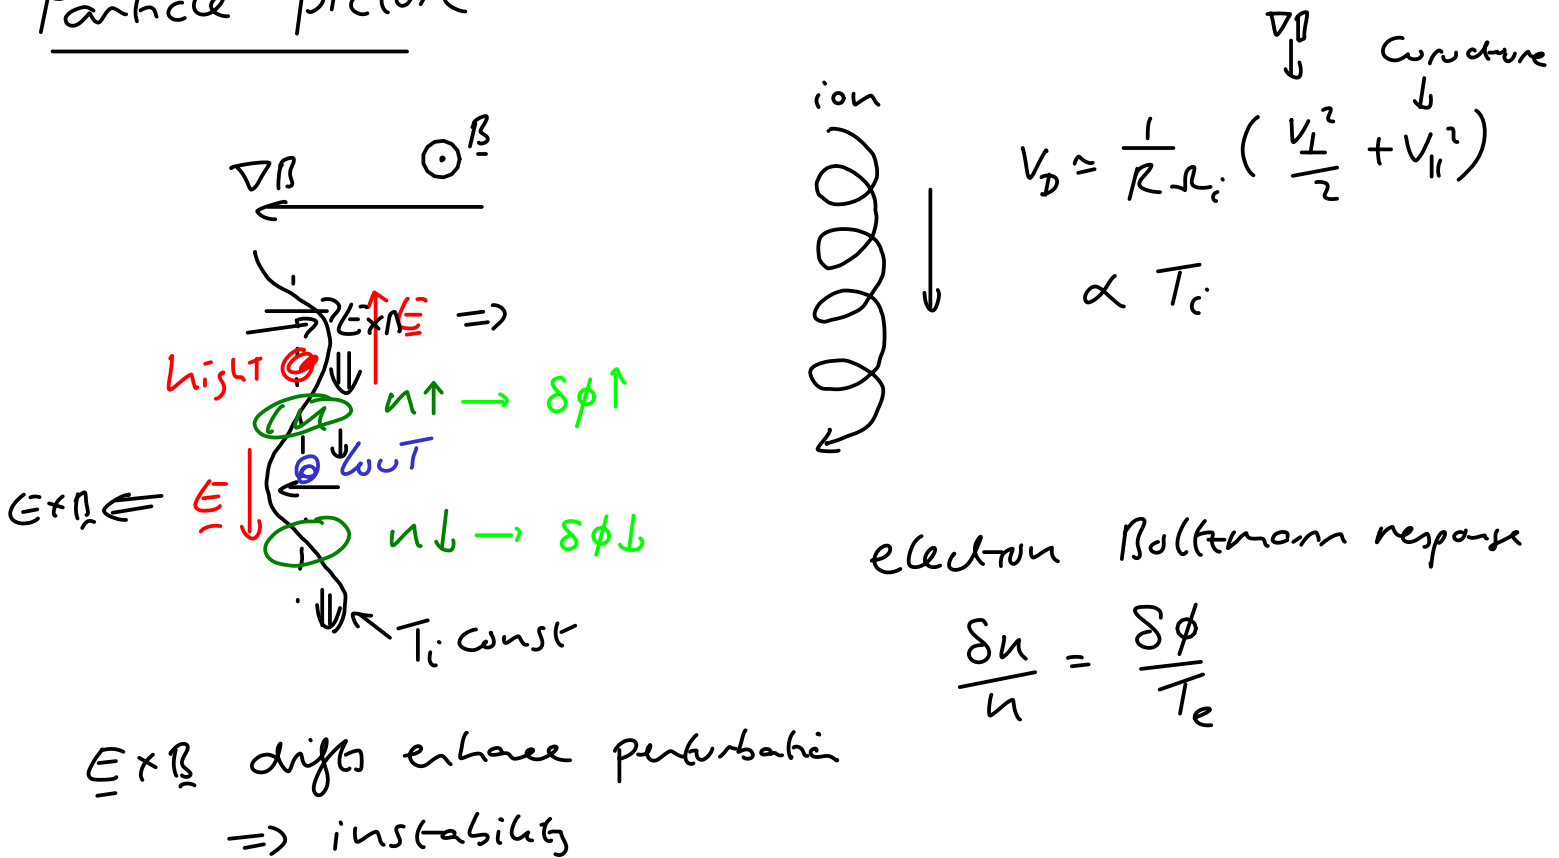 Particle picture
∇B
⊙ B
E×B E ⇒
high T
n↑ → δφ↑
low T
E×B ⇐ E
n↓ → δφ↓
T_i const
E × B drifts enhance perturbation
⇒ instability
ion
∇B
Curvature
V_D ≃ 1/(R Ω_i) ( V_⊥²/2 + V_∥² )
∝ T_i
electron Boltzmann response
δn/n = δφ/T_e